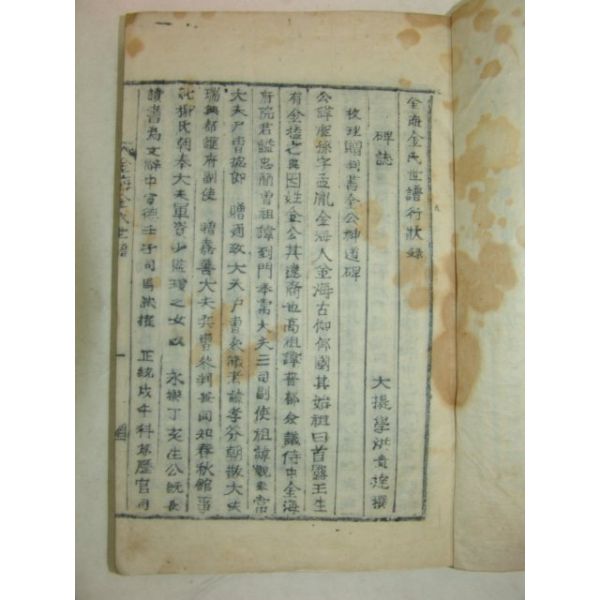 金海金氏世譜行狀錄
碑誌
大提學洪貴達撰
校理贈判書金公神道碑
公諱震孫字孟胤金海人金海古伽倻國其始祖曰首露王生
有金榼之異因姓金公其遠裔也高祖諱普都僉議侍中金海
府院君謚忠簡曾祖諱到門奉常大夫三司副使祖諱觀
大夫戶曹 贈通政大夫戶曹參議考諱孝芬朝散大夫
瑞興都護府副使 贈嘉善大夫兵曹參判兼同知春秋館事
氏朝奉大夫軍資少監 之女以 永樂丁亥生公旣長
讀書爲文 中 司馬 正統戊午科 歷官司
金海金氏世譜
一